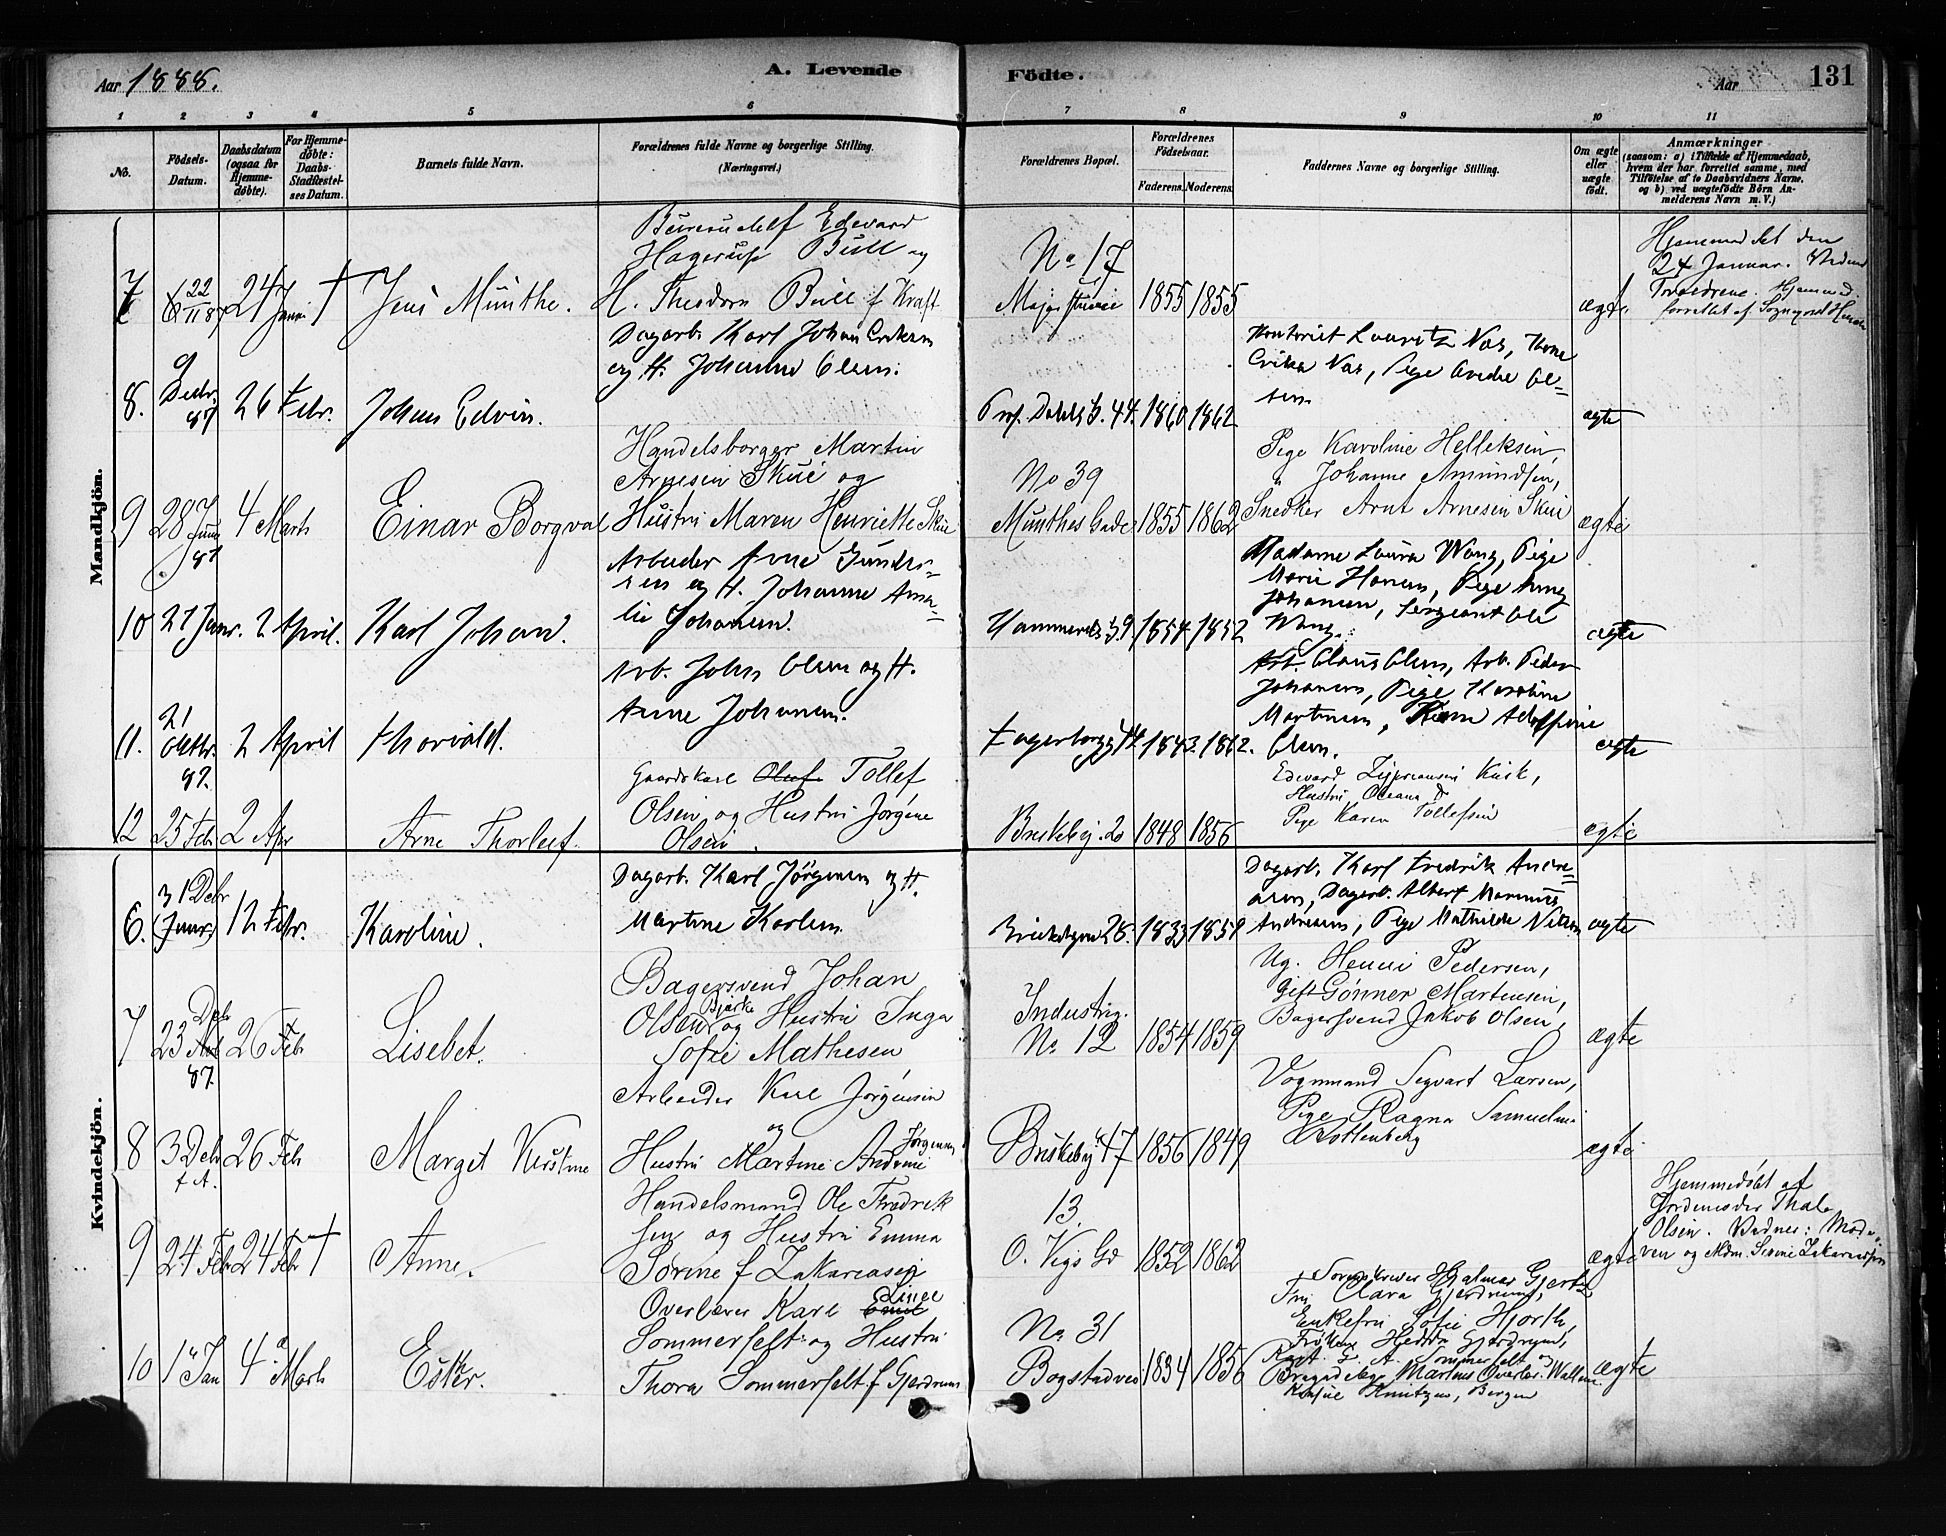 Aar 1888.
A. Levende
Födte.
Aar
131
1 2 3 4 5 6 7 8 9 10 11
No.
Födsels-
Datum.
Daabsdatum
(ogsaa for
Hjemme-
döbte).
For Hjemme-
döbte:
Daabs-
Stadfæstel-
ses Datum.
Barnets fulde Navn.
Forældrenes fulde Navne og borgerlige Stilling.
(Næringsvei.)
Forældrenes Bopæl.
Forældrenes
Födselsaar.
Faderens.
Moderens.
Faddernes Navne og borgerlige Stilling.
Om ægte
eller
uægte
födt.
Anmærkninger
(saasom: a) i Tilfælde af Hjemmedaab,
hvem der har forrettet samme, med
Tilföielse af to Daabsvidners Navne,
og b) ved uægtefödte Börn An-
melderens Navn m. V.)
Mandkjön.
7
22
24 Janr †
Jens Münthe.
Edevard
Hagerup Bull og
H. Theodora Bull f Kraft
No 17
1855 1855
ægte
Hjemmedöbt den
24 Januar.
Forældrene. Hjemmed.
forrettet af
8.
9
Decbr.
87
26 Febr.
Johan Edvin.
Dagarb. Karl Johan Eriksen
og H. Johanne Olsen.
Prof. Dahls G. 44.
1860 1862
Kontorist Lauritz Nas,
Erika Nas, Pige
Olsen
ægte
9
28
87
4 Marts
Einar Borgval
Handelsborger Martin
Arnesen Skui og
Hustru Maren Henriette Skui
No 39
Münthes Gade
1855 1862
Pige Karoline Helleksen,
" Johanne Amundsen,
Snedker Arnt Arnesen Skui
ægte
10
27 Janr. 2 April.
Karl Johan.
Arbeider Arne Gunder-
sen og H. Johanne Ama-
lie Johansen.
Hammersb. G. 9.
1854 1852
Madame Laura Wang, Pige
Marie Hansen, Pige Anna
Johansen, Sergeant Ole
Wang.
ægte
11.
21
Oktbr.
87.
2 April
Thorvald.
Arb. Johs Olsen og H.
Anne Johansen.
Fagerborgg 14.
1843. 1862.
Arb. Claus Olsen, Arb. Peder
Johansen, Pige Karoline
Martinsen, Adolfine
Olsen.
ægte
12
25 Feb
2 Apr
Arne Thorleif.
Gaardskarl Oluf Tollef
Olsen og Hustru Jørgine
Olsen.
Briskeby. 20
1848 1856
Edvard Zypriansen Kink,
Hustru Oleana Do
Pige Karen Tollefsen
ægte
Kvindekjön.
6.
31 Decbr
(Janr.)
12 Febr.
Karoline.
Dagarb. Karl Jörgensen og H.
Martine Karlsen.
Briskebyvn 26.
1833 1859
Dagarb. Karl Fredrik Andre-
asen, Dagarb. Albert Marinus
Andreasen, Pige Mathilde Nilsen
ægte
7
23 Decbr
87.
26 Feb
Lisebet.
Bagersvend Johan
Olsen Bjerke og Hustru Inga
Sofie Mathesen
Industrig.
No 12
1854 1859
Ug. Henrii Pedersen,
Gift Gönner Martensen,
Bagersvend Jakob Olsen,
ægte
8
3 Decbr
f. A.
26 Feb
Marget Kirstine
Arbeider Karl Jørgensen
og
Hustru Martine Andrine Jørgensen
Briskebyv. 47
1856 1849
Vognmand Segvart Larsen,
Pige Ragna Samueline
Rottenberg
ægte
9
24 Feb 24 Feb †
Anne.
Handelsmand Ole Fredrik
sen og Hustru Emma
Sørine f Zakariasen
13.
O. Vogs Gd
1852 1862
ægte
Hjemmedöbt af
Jordemoder Thale
Olsen. Vidner: Mode-
ren og Mdm. Serine Zakariassen
10
1 Jan
4 Marts
Ester.
Overlærer Karl Emil Linee
Sommerfelt og Hustru
Thora Sommerfelt f Gjerdrum
No 31
Bogstadvei
1834 1856
Sorenskriver Hjalmar Gjerts
Fru Clara Gjerdrum,
Enkefru Sofie Hjorth,
Fröken Hedda Gjerdrum,
Kapt. G. A. Sommerfelt og
Bergen
ægte